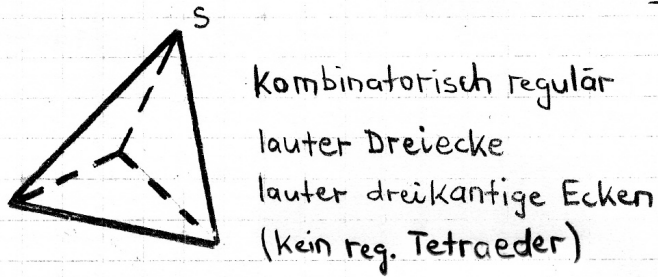 S
kombinatorisch regulär
lauter Dreiecke
lauter dreikantige Ecken
(kein reg. Tetraeder)